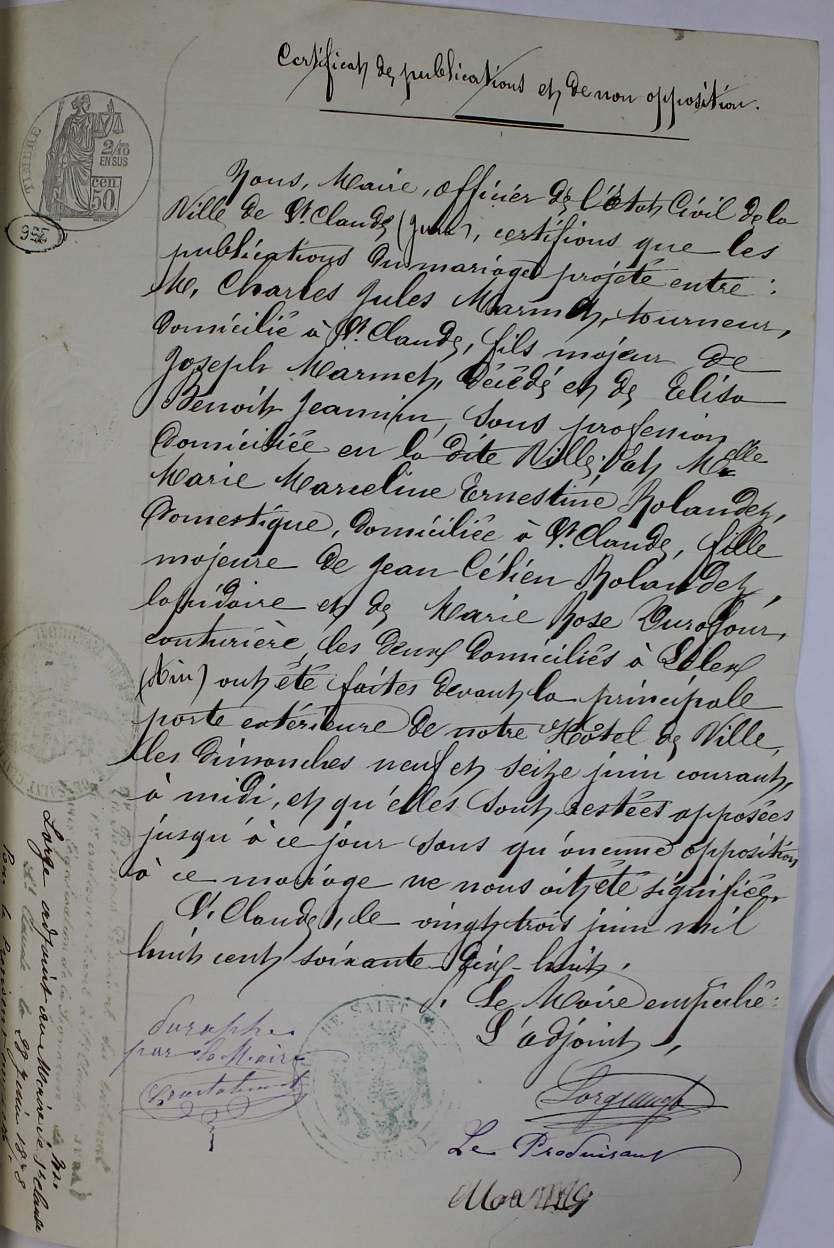 Certificat de publications et de non opposition.
TIMBRE
2/10
EN SUS
50
CEN
Nous, Maire, officier de l'état Civil de la
Ville de St. Claude (Jura), certifions que les
publications du mariage projeté entre :
M. Charles Jules Marmet, tourneur,
domicilié à St. Claude, fils majeur de
Joseph Marmet, décédé et de Elisa
Benoit Jeannin, sans profession
domiciliée en la dite Ville; Et Melle
Marie Marceline Ernestine Rolandez,
domestique, domiciliée à St. Claude, fille
majeure de Jean Célien Rolandez,
lapidaire et de Marie Rose Durafour,
couturière, les deux domiciliés à Lélex
(Ain) ont été faites devant la principale
porte extérieure de notre Hôtel de Ville,
les dimanches neuf et seize juin courant,
à midi, et qu'elles sont restées apposées
jusqu'à ce jour sans qu'aucune opposition
à ce mariage ne nous ait été signifiée.
St. Claude, le vingt trois juin mil
huit cent soixante dix-huit.
Le Maire empêché :
L'adjoint,
par le Maire
DE SAINT
Le Produisant
Marmet
adjoint au Maire de St Claude
St Claude le 29 juin 1878